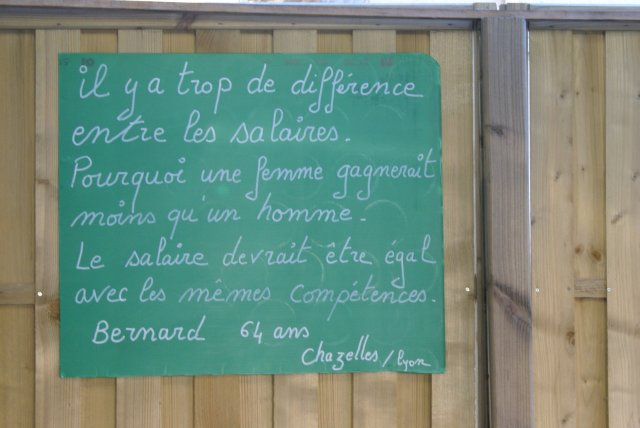 il y a trop de différence
entre les salaires.
Pourquoi une femme gagnerait
moins qu'un homme.
Le salaire devrait être égal
avec les mêmes compétences.
Bernard 64 ans
Chazelles/lyon